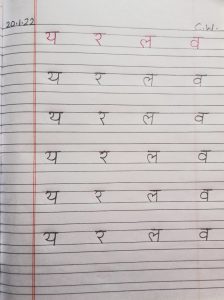 20.1.22 C.W.
य र ल व
य र ल व
य र ल व
य र ल व
य र ल व
य र ल व